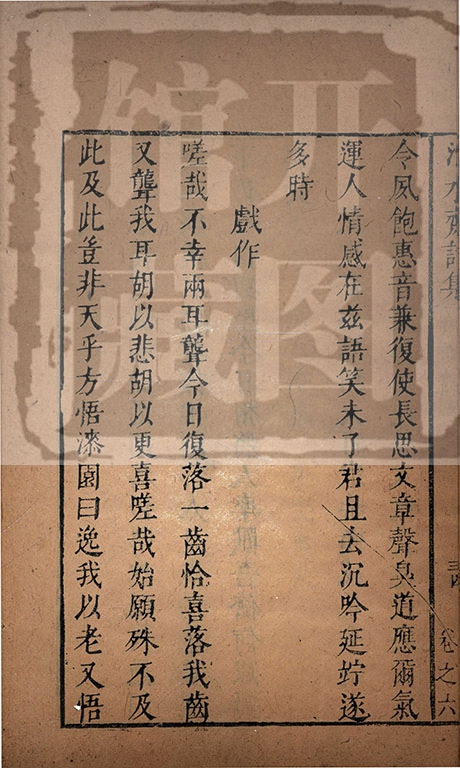 令夙飽惠音兼復使長思文章聲臭道應爾氣
運人情感在茲語笑未了君且去沉吟延竚遂
多時
戲作
嗟哉不幸兩耳聾今日復落一齒恰喜落我齒
又聾我耳胡以悲胡以更喜嗟哉始願殊不及
此及此豈非天乎方悟漆園曰逸我以老又悟
水齋詩集
卷之六
开图
馆藏